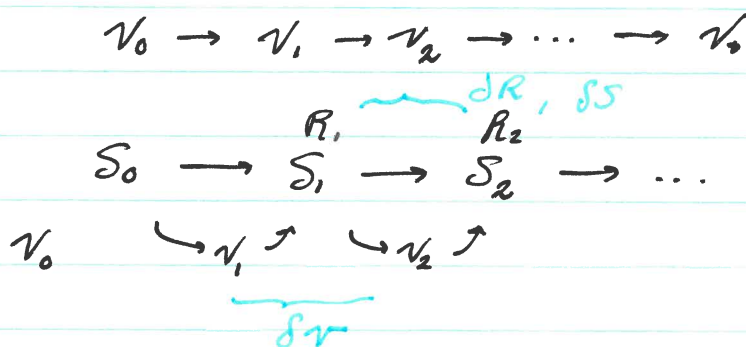 v₀ → v₁ → v₂ → ⋯ → v*
δR, δS
R₁ R₂
S₀ → S₁ → S₂ → ⋯
v₀ ↘ v₁ ↗ ↘ v₂ ↗
δv